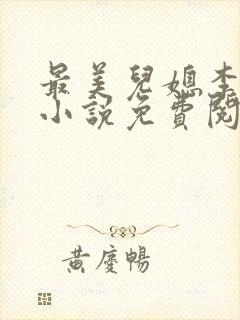 最美兒媳李
小說免費閱
黃慶暢